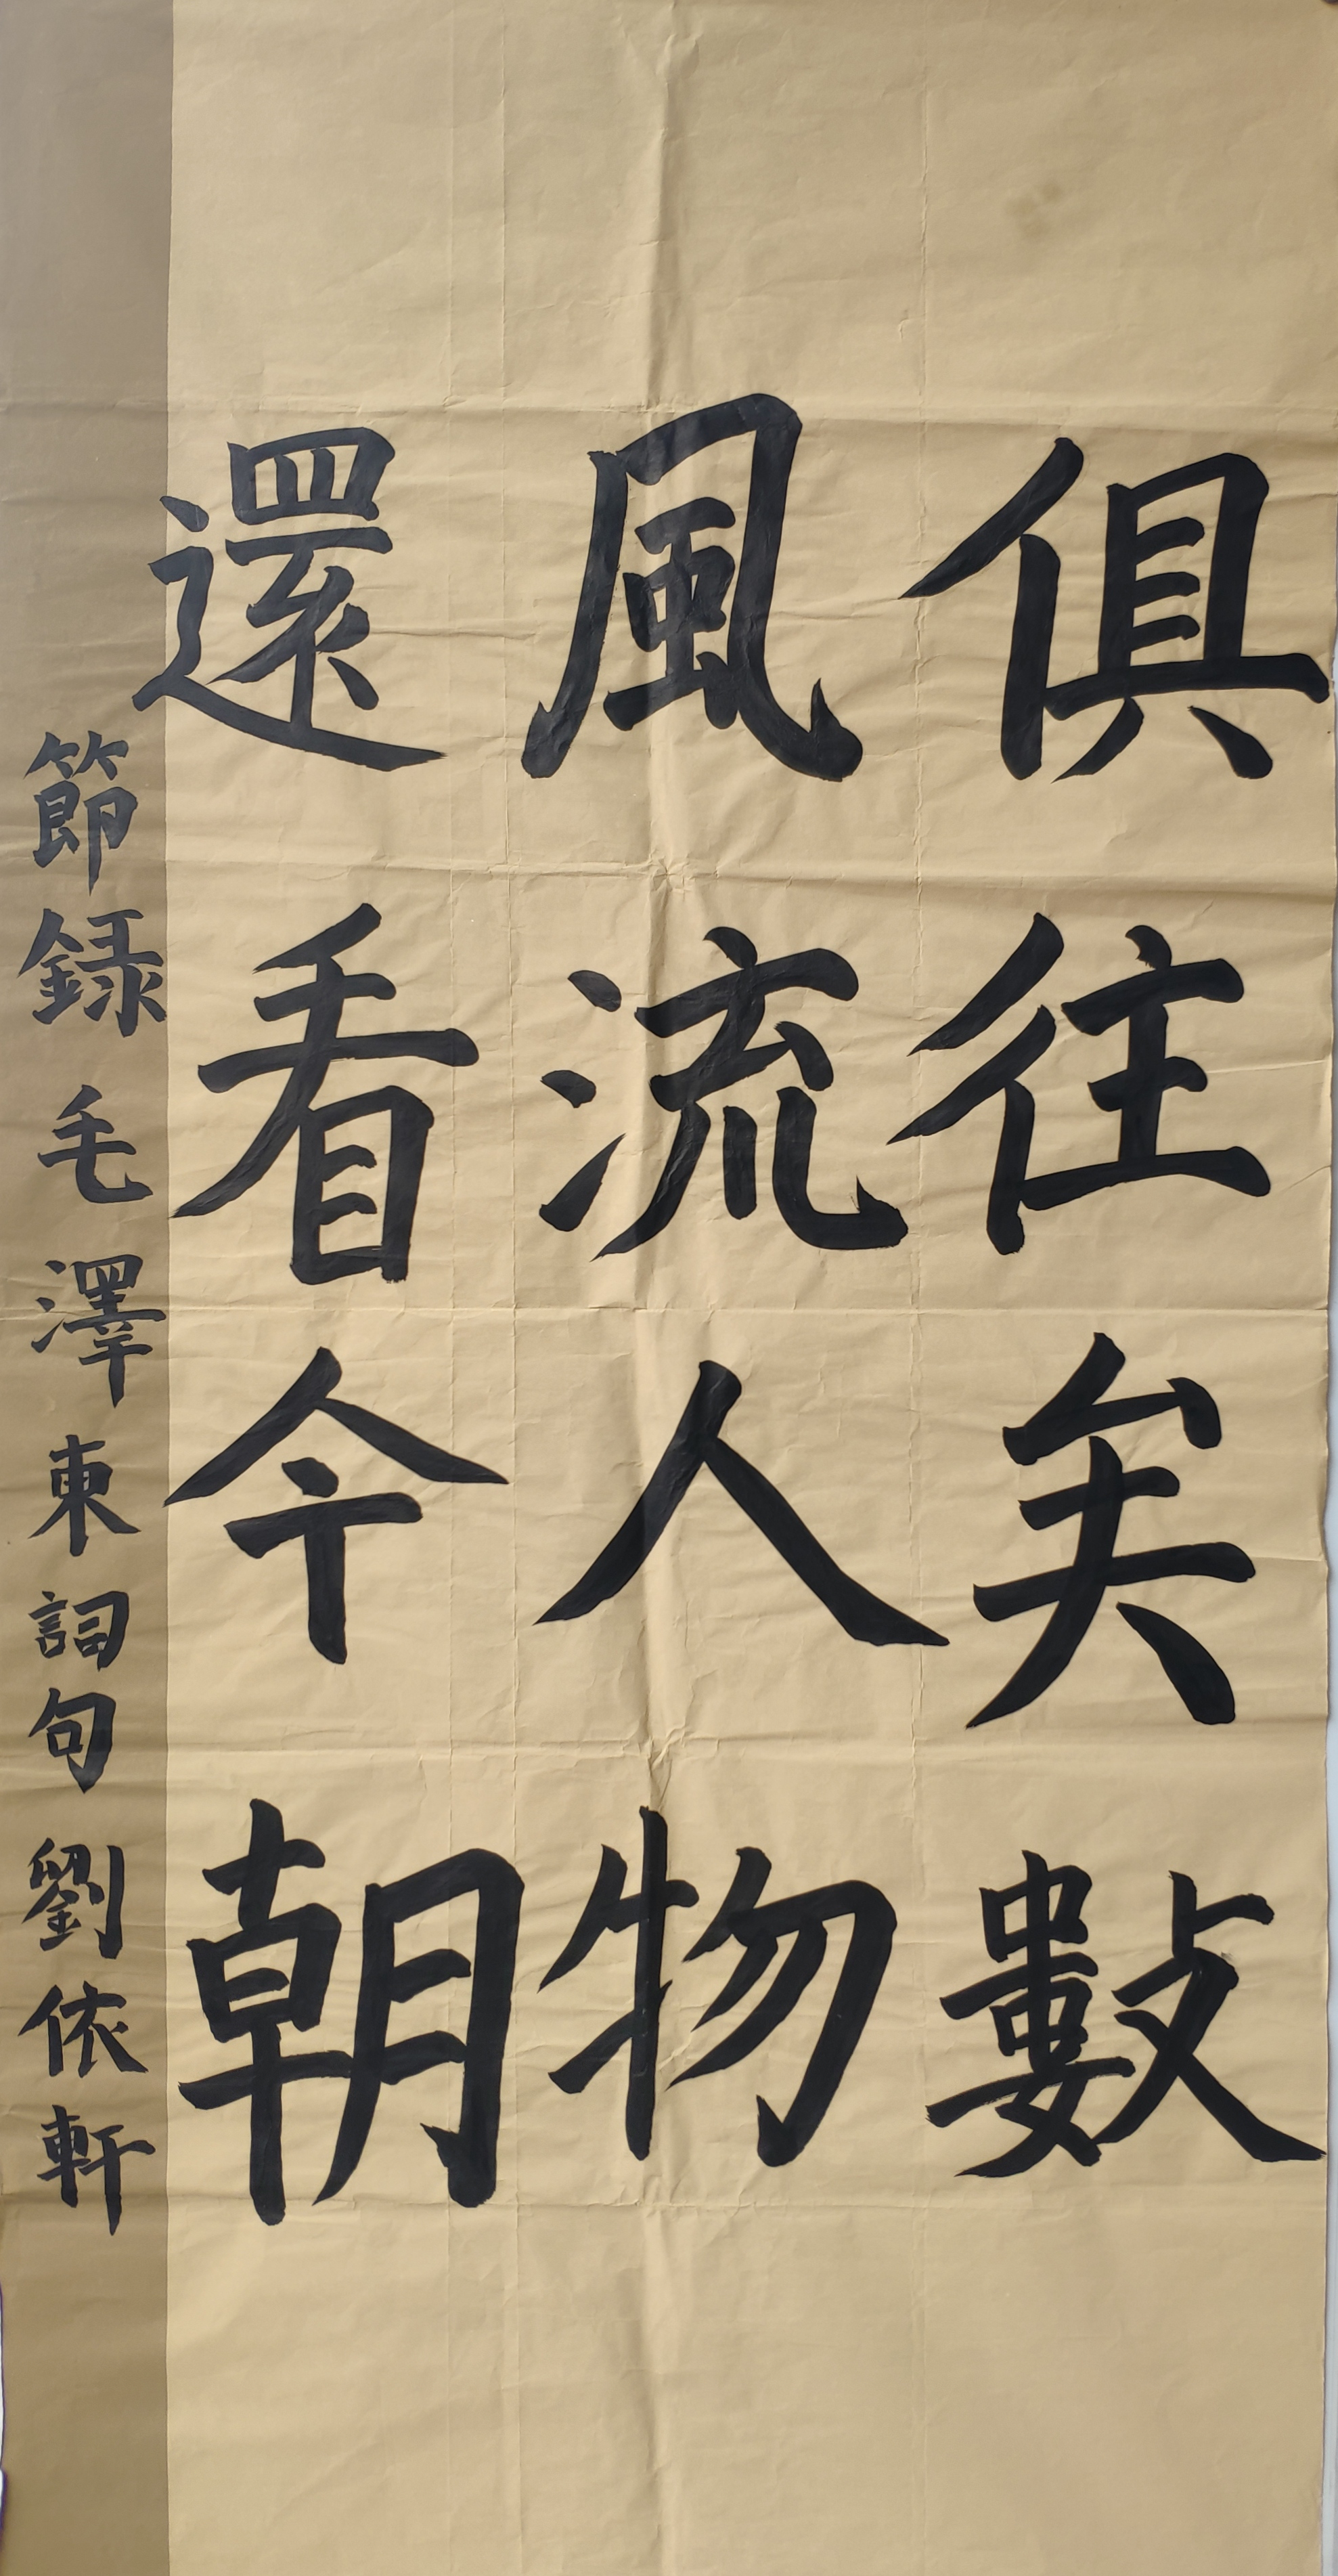 俱往矣數
風流人物
還看今朝
節録毛澤東詞句劉依軒